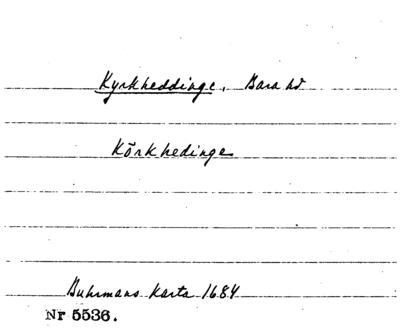 Kyrkheddinge, Bara hd
Körkhedinge
Buhrmans karta 1684
Nr 5536.